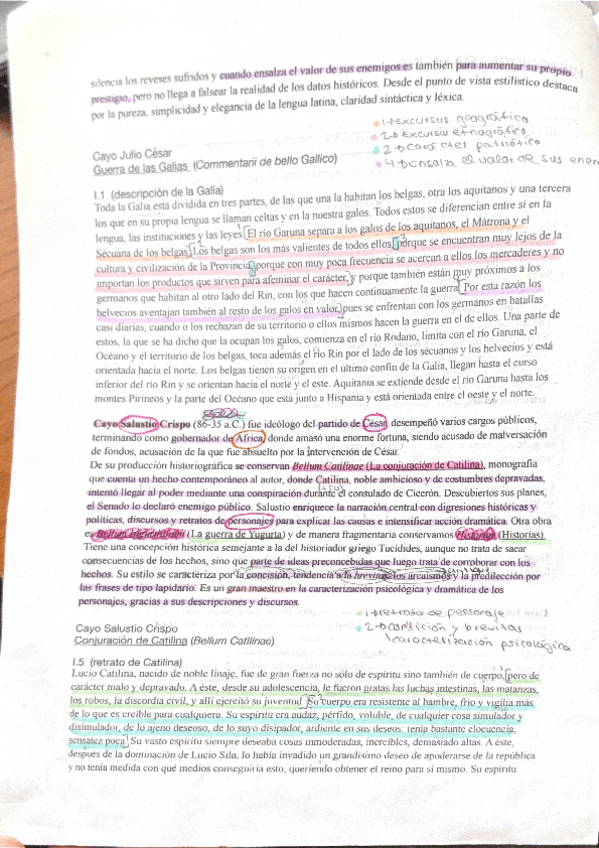 silencia los reveses sufridos y cuando ensalza el valor de sus enemigos es también para aumentar su propio
prestigio, pero no llega a falsear la realidad de los datos históricos. Desde el punto de vista estilístico destaca
por la pureza, simplicidad y elegancia de la lengua latina, claridad sintáctica y léxica.
1→excursus geográfico
2→Excursu etnográfico
2→Carácter patriótico
4→Ensalza el valor de sus enem
Cayo Julio César
Guerra de las Galias (Commentarii de bello Gallico)
I.1 (descripción de la Galia)
Toda la Galia está dividida en tres partes, de las que una la habitan los belgas, otra los aquitanos y una tercera
los que en su propia lengua se llaman celtas y en la nuestra galos. Todos estos se diferencian entre sí en la
lengua, las instituciones y las leyes. El río Garuna separa a los galos de los aquitanos, el Mátrona y el
Sécuana de los belgas. Los belgas son los más valientes de todos ellos, porque se encuentran muy lejos de la
cultura y civilización de la Provincia, porque con muy poca frecuencia se acercan a ellos los mercaderes y no
importan los productos que sirven para afeminar el carácter, y porque también están muy próximos a los
germanos que habitan al otro lado del Rin, con los que hacen continuamente la guerra. Por esta razón los
helvecios aventajan también al resto de los galos en valor, pues se enfrentan con los germanos en batallas
casi diarias, cuando o los rechazan de su territorio o ellos mismos hacen la guerra en el de ellos. Una parte de
estos, la que se ha dicho que la ocupan los galos, comienza en el río Ródano, limita con el río Garuna, el
Océano y el territorio de los belgas, toca además el río Rin por el lado de los sécuanos y los helvecios y está
orientada hacia el norte. Los belgas tienen su origen en el último confín de la Galia, llegan hasta el curso
inferior del río Rin y se orientan hacia el norte y el este. Aquitania se extiende desde el río Garuna hasta los
montes Pirineos y la parte del Océano que está junto a Hispania y está orientada entre el oeste y el norte.
Cayo Salustio Crispo (86-35 a.C.) fue ideólogo del partido de César, desempeñó varios cargos públicos,
terminando como gobernador de África, donde amasó una enorme fortuna, siendo acusado de malversación
de fondos, acusación de la que fue absuelto por la intervención de César.
De su producción historiográfica se conservan Bellum Catilinae (La conjuración de Catilina), monografía
que cuenta un hecho contemporáneo al autor, donde Catilina, noble ambicioso y de costumbres depravadas,
intentó llegar al poder mediante una conspiración durante el consulado de Cicerón. Descubiertos sus planes,
el Senado lo declaró enemigo público. Salustio enriquece la narración central con digresiones históricas y
políticas, discursos y retratos de personajes para explicar las causas e intensificar acción dramática. Otra obra
es Bellum Iugurthinum (La guerra de Yugurta) y de manera fragmentaria conservamos Historiae (Historias).
Tiene una concepción histórica semejante a la del historiador griego Tucídides, aunque no trata de sacar
consecuencias de los hechos, sino que parte de ideas preconcebidas que luego trata de corroborar con los
hechos. Su estilo se caracteriza por la concisión, tendencia a la brevitas, los arcaísmos y la predilección por
las frases de tipo lapidario. Es un gran maestro en la caracterización psicológica y dramática de los
personajes, gracias a sus descripciones y discursos.
1→retrato de personaje
2→condición y brevitas
caracterización psicológica
Cayo Salustio Crispo
Conjuración de Catilina (Bellum Catilinae)
I.5 (retrato de Catilina)
Lucio Catilina, nacido de noble linaje, fue de gran fuerza no sólo de espíritu sino también de cuerpo, pero de
carácter malo y depravado. A éste, desde su adolescencia, le fueron gratas las luchas intestinas, las matanzas,
los robos, la discordia civil, y allí ejercitó su juventud. Su cuerpo era resistente al hambre, frío y vigilia más
de lo que es creíble para cualquiera. Su espíritu era audaz, pérfido, voluble, de cualquier cosa simulador y
disimulador, de lo ajeno deseoso, de lo suyo disipador, ardiente en sus deseos; tenía bastante elocuencia,
sensatez poca. Su vasto espíritu siempre deseaba cosas inmoderadas, increíbles, demasiado altas. A éste,
después de la dominación de Lucio Sila, lo había invadido un grandísimo deseo de apoderarse de la república
y no tenía medida con qué medios conseguiría esto, queriendo obtener el reino para sí mismo. Su espíritu